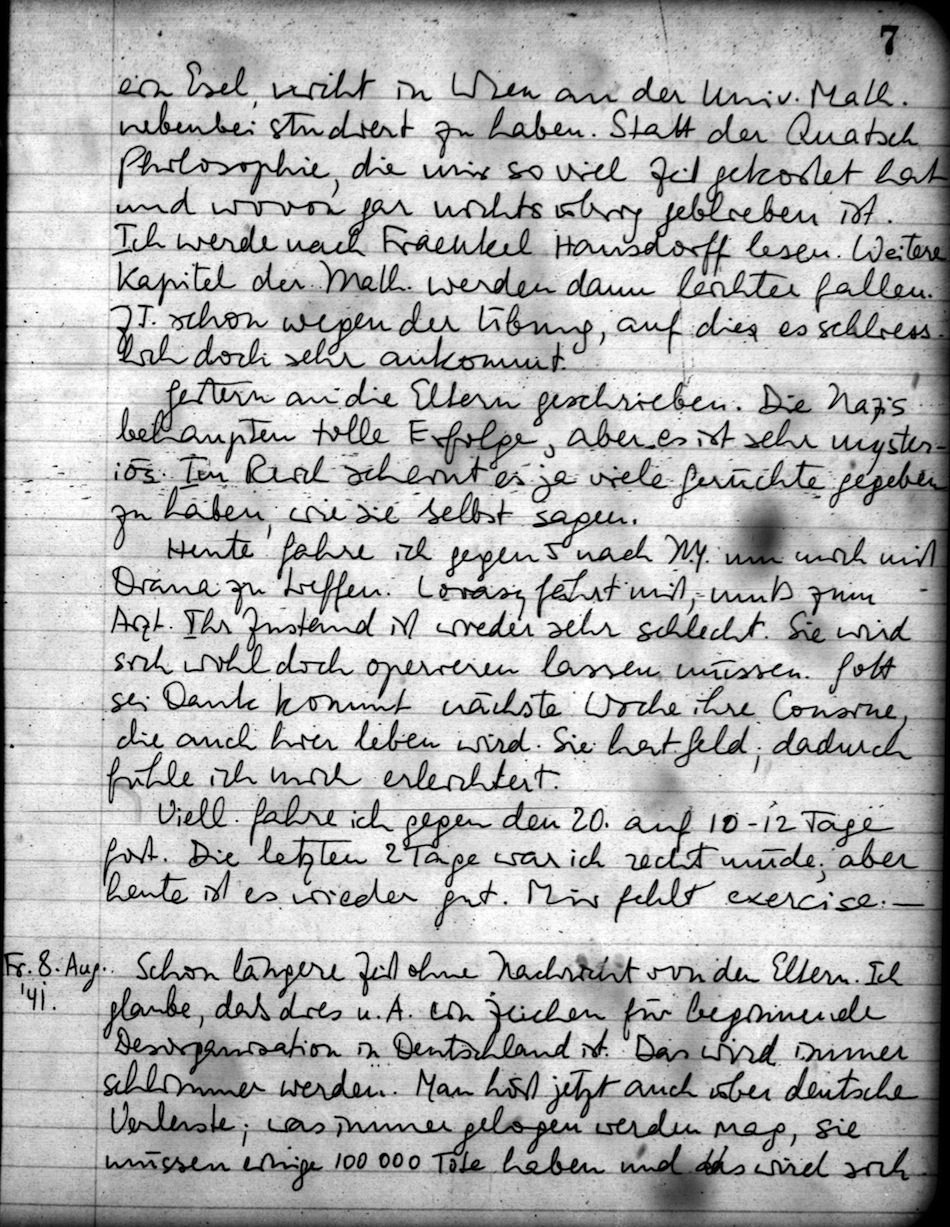 7
ein Esel, nicht in Wien an der Univ. Math.
nebenbei studiert zu haben. Statt der Quatsch
Philosophie, die mir so viel Zeit gekostet hat
und wovon gar nichts übrig geblieben ist.
Ich werde nach Fraenkel Hausdorff lesen. Weitere
Kapitel der Math. werden dann leichter fallen.
ZT. schon wegen der Übung, auf die es schliess-
lich doch sehr ankommt.
Gestern an die Eltern geschrieben. Die Nazis
behaupten tolle Erfolge, aber es ist sehr myster-
iös. Im Reich scheint es ja viele Gerüchte gegeben
zu haben, wie sie selbst sagen.
Heute fahre ich gegen 5 nach NY. um mich mit
Diana zu treffen. fährt mit, muß zum
Arzt. Ihr Zustand ist wieder sehr schlecht. Sie wird
sich wohl doch operieren lassen müssen. Gott
sei Dank kommt nächste Woche ihre Cousine,
die auch hier leben wird. Sie hat Geld; dadurch
fühle ich mich erleichtert.
Viell. fahre ich gegen den 20. auf 10-12 Tage
fort. Die letzten 2 Tage war ich recht müde; aber
heute ist es wieder gut. Mir fehlt exercise.—
Fr. 8. Aug. Schon längere Zeit ohne Nachricht von den Eltern. Ich
'41. glaube, daß dies u. A. ein Zeichen für beginnende
Desorganisation in Deutschland ist. Das wird immer
schlimmer werden. Man hört jetzt auch über deutsche
Verluste; was immer gelogen werden mag, sie
müssen einige 100 000 Tote haben und das wird sich